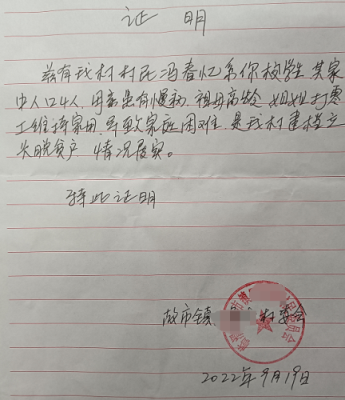 证明
兹有我村村民冯春忆系你校学生 其家
中人口4人, 因患有慢病, 祖母高龄 姐姐打
工维持家用, 导致家庭困难, 是我村建档立
卡脱贫户 情况属实。
特此证明
故市镇 村委会
2022年9月19日